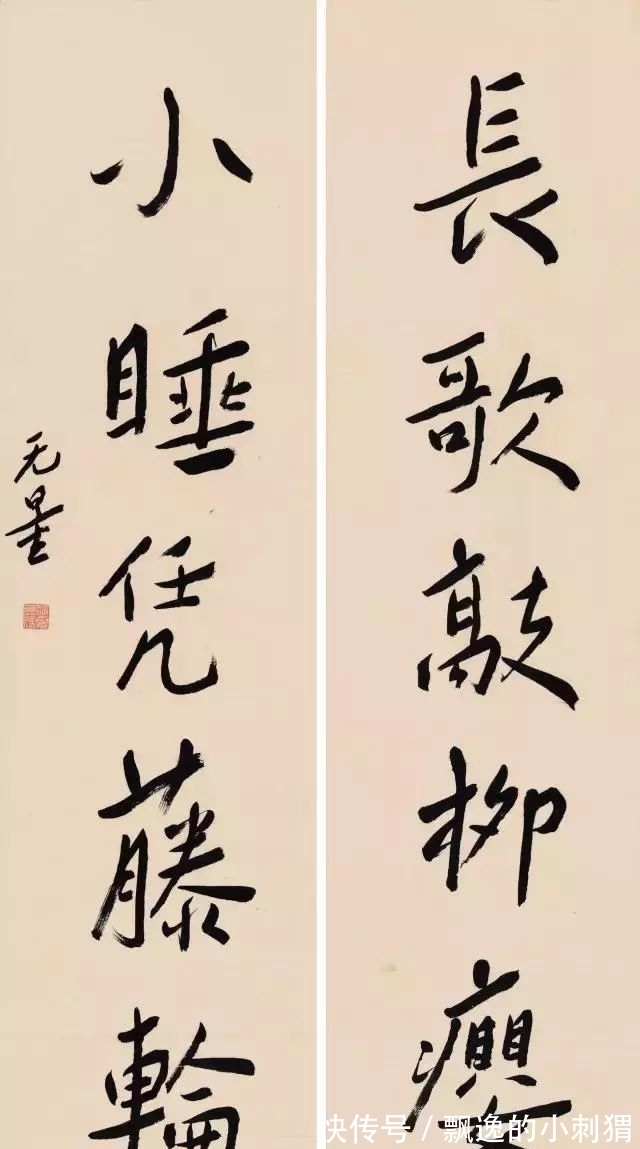 長歌敲柳癭
小睡凭藤輪
无量
快传号/飘逸的小刺猬